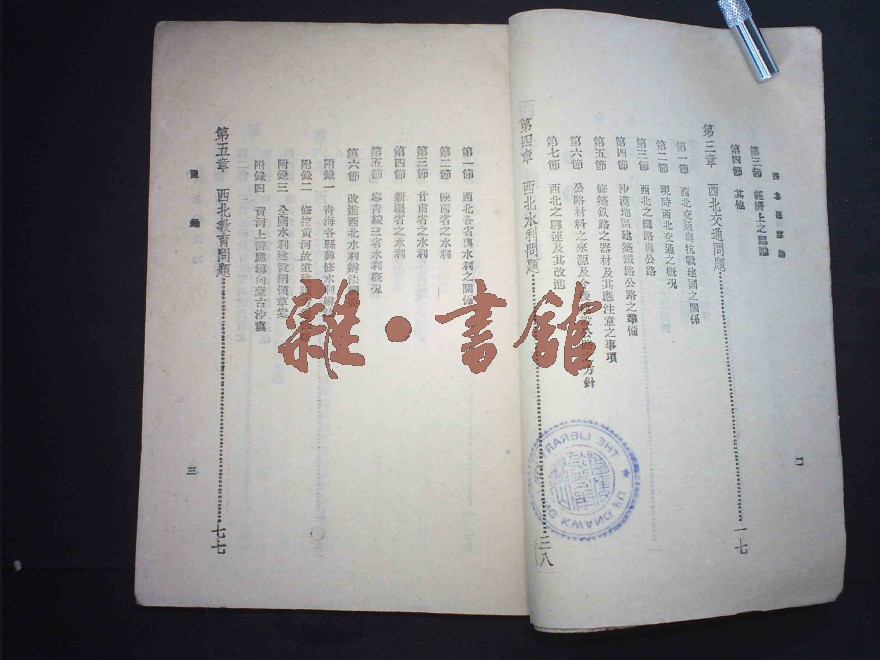 西北建設論
第三節 經濟上之認識
第四節 其他
第三章 西北交通問題 一七
第一節 西北交通與抗戰建國之關係
第二節 現時西北交通之概況
第三節 西北之鐵路與公路
第四節 沙漠地區建築鐵路公路之準備
第五節 修築鐵路之器材及其應注意之事項
第六節 公路材料之來源及今後建設公路之方針
第七節 西北之驛運及其改進
第四章 西北水利問題 三八
二
第一節 西北各省與水利之關係
第二節 陝西省之水利
第三節 甘肅省之水利
第四節 新疆省之水利
第五節 寧青綏三省水利概況
第六節 改進西北水利辦法
附錄一 青海各縣興修水利辦
附錄二 修挖黃河故道建
附錄三 全國水利建設綱領草案
附錄四 黃河上游應導向蒙古沙漠
第五章 西北教育問題 七七
目錄
三
雜·書館
THE LIBRARY
KWANG